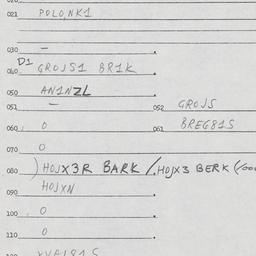 021 POLO,NK1
030 —
D1
040 GROJS1 BR1K
050 AN1NZL
051 — 052 GROJS
060 0 061 BREG81S
070 0
080 ) HOJX3R BARK / HOJX3 BERK
090 HOJXN
100 0
110 0